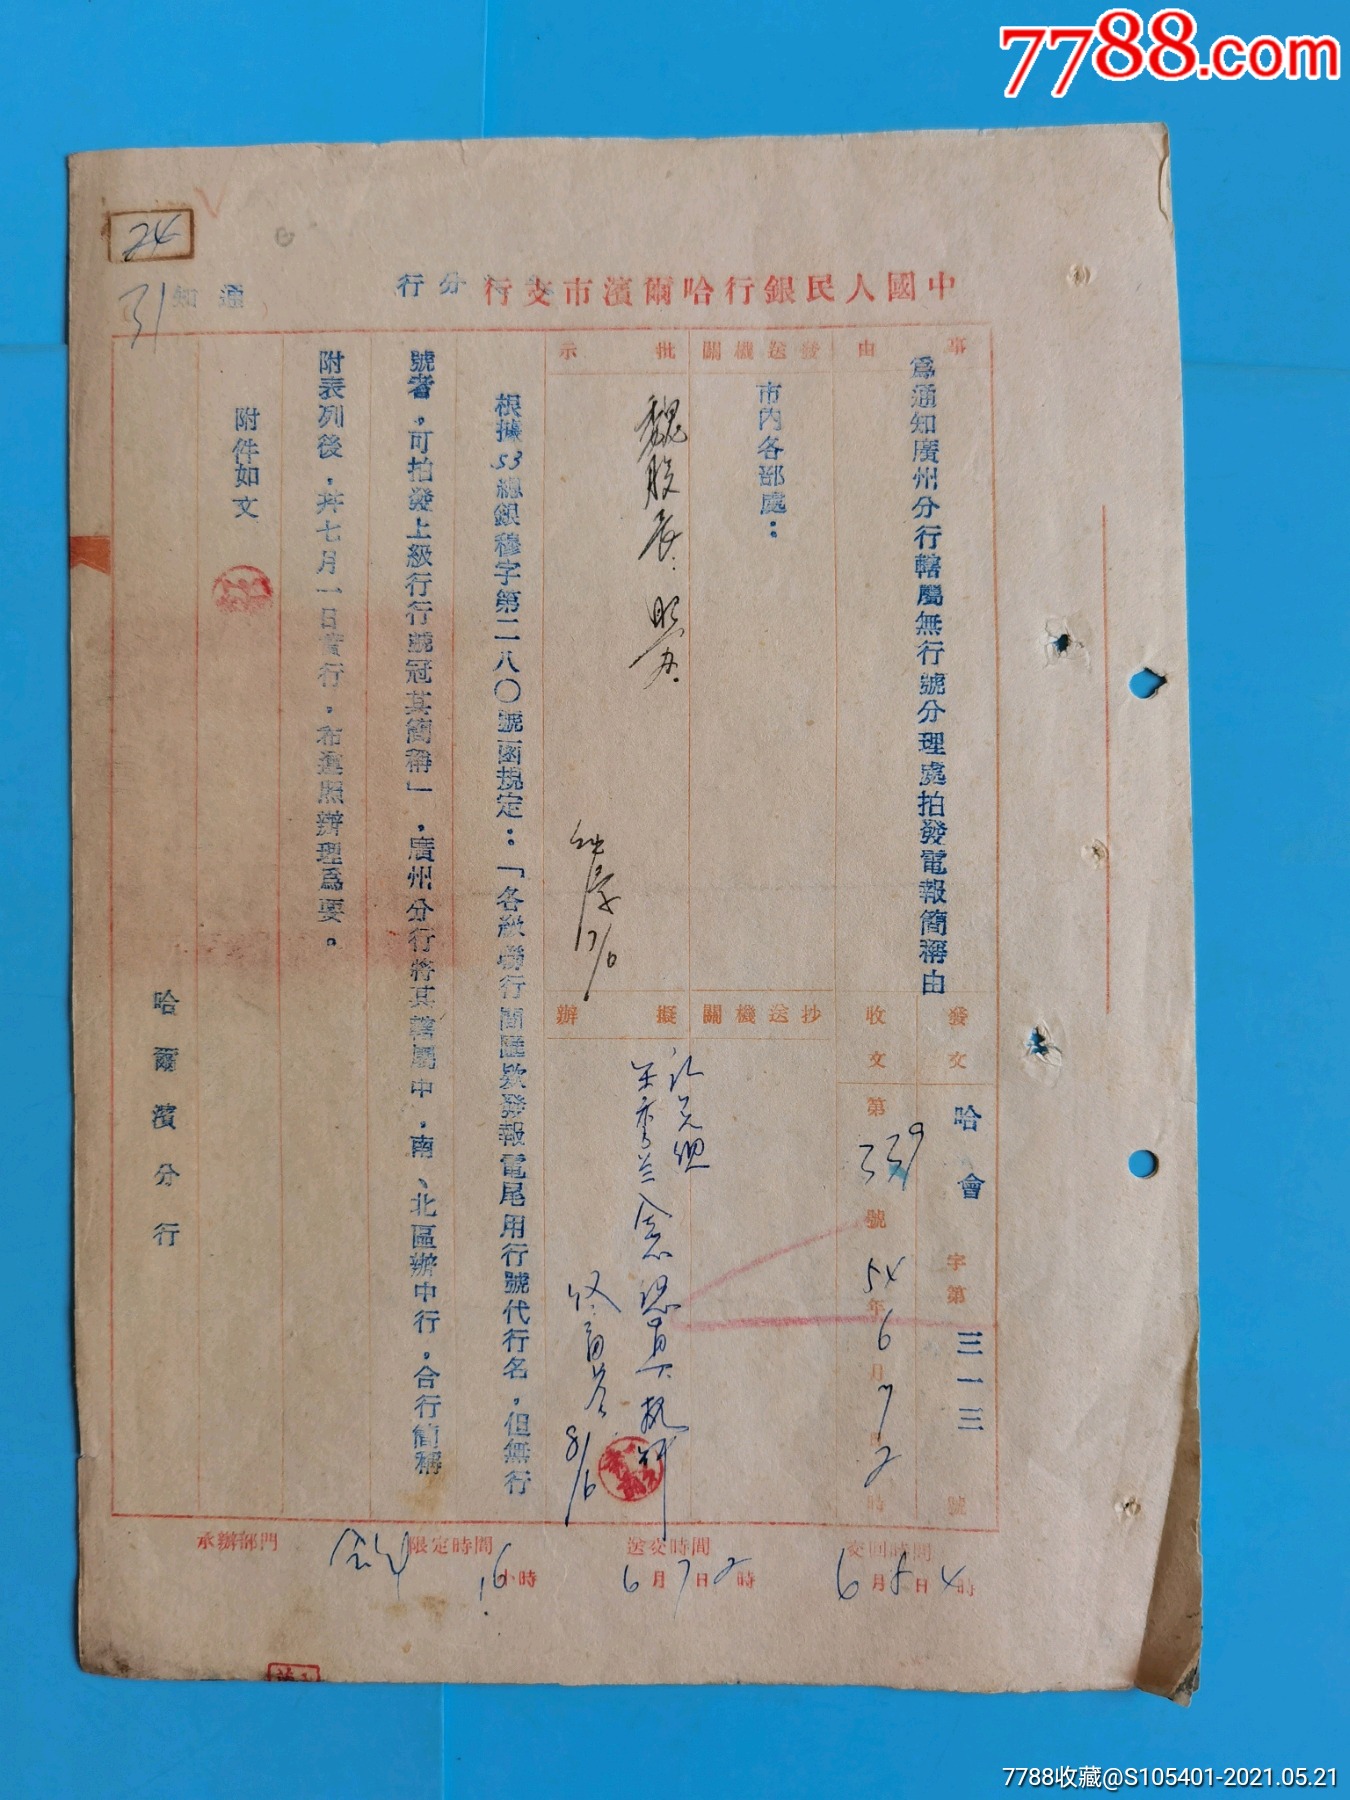 7788.com
24
31
中國人民銀行哈爾濱市支行
分行
通知
事由
為通知廣州分行轄屬無行號分理處拍發電報簡稱由
發文
哈會字第三一三號
收文
第339號
54年6月7日2時
發送機關
市内各部處：
抄送機關
批示
魏股長：
17/6
擬辦
8/6
根據53總銀穆字第二八〇號函規定：「各級聯行間匯欵發報電尾用行號代行名，但無行
號者，可拍發上級行行號冠其簡稱」，廣州分行將其轄屬中，南、北區辦中行，合行簡稱
附表列後，并七月一日實行，希遵照辦理爲要。
附件如文
哈爾濱分行
承辦部門
限定時間
16小時
送交時間
6月7日2時
交回時間
6月8日4時
7788收藏@S105401-2021.05.21